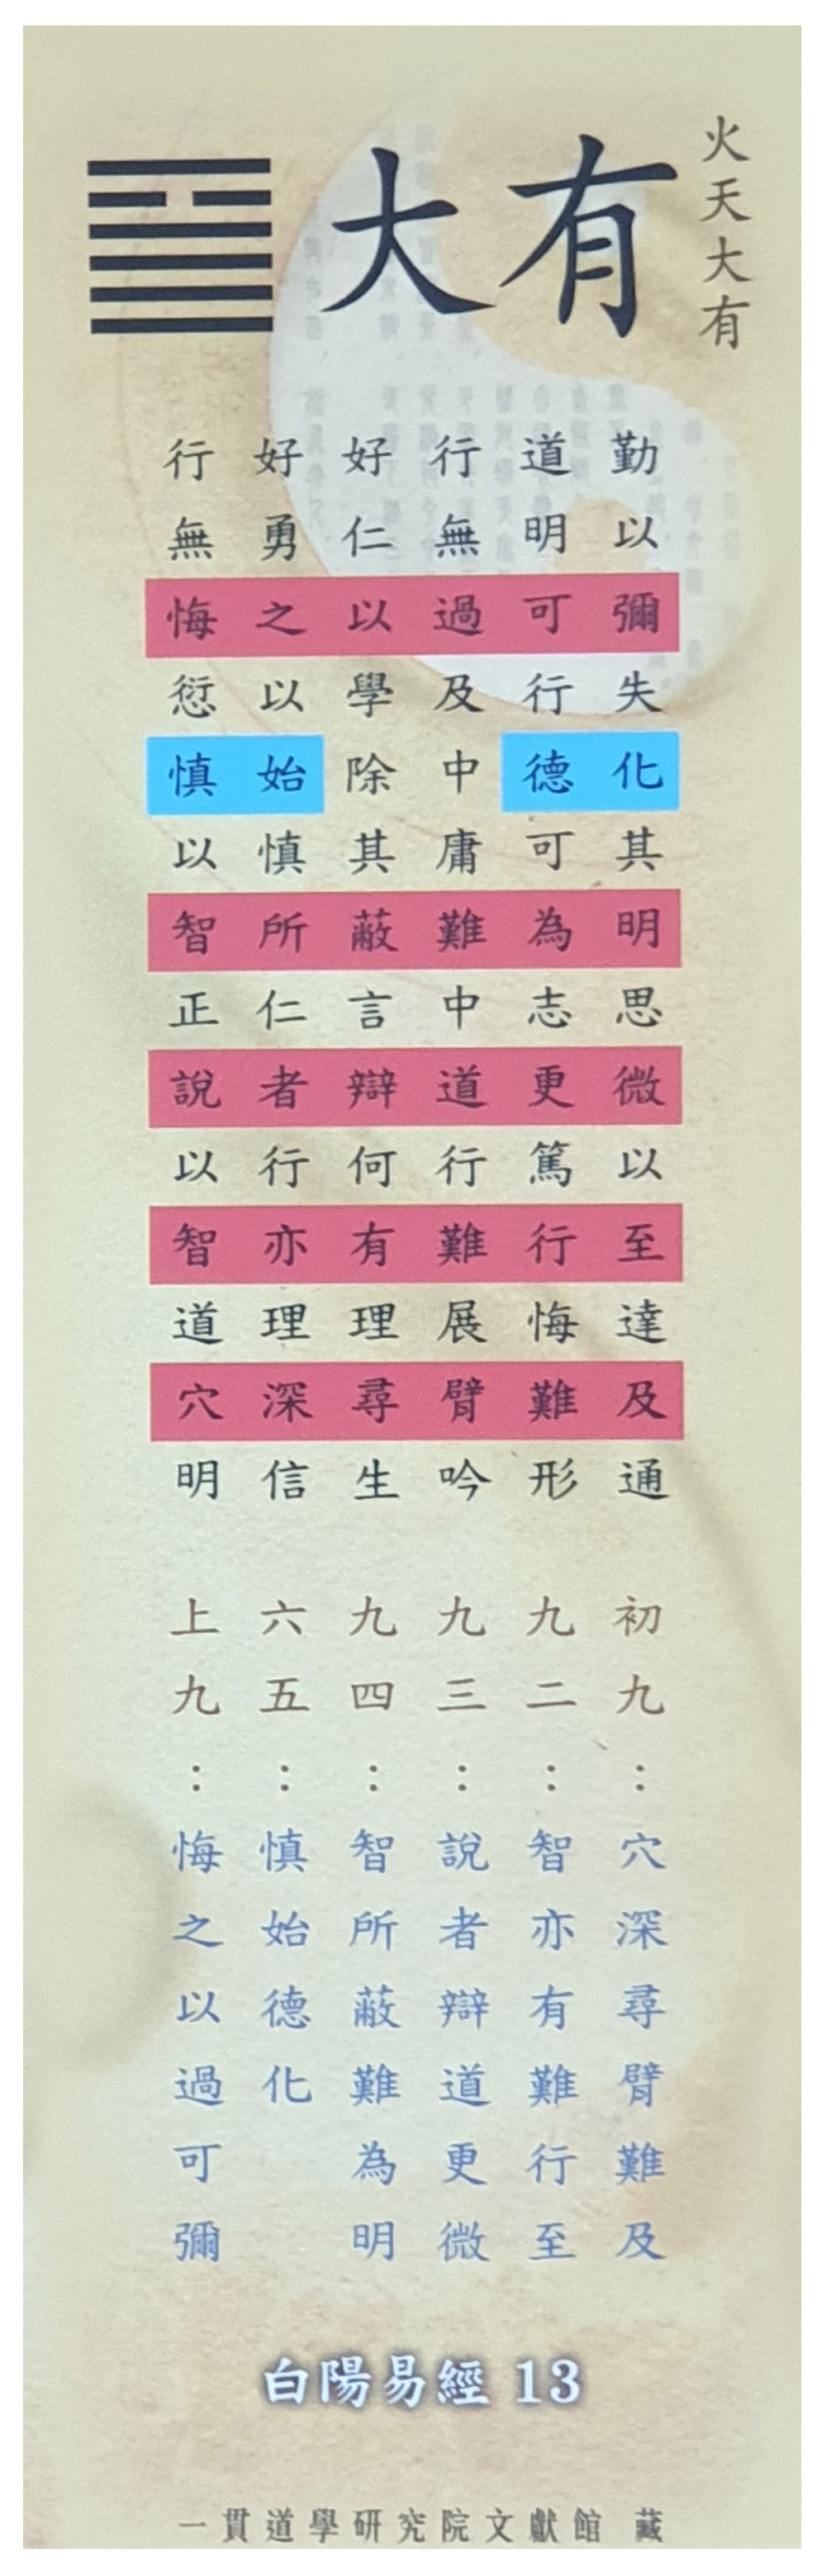 火天大有
大有
勤以彌失化其明思微以至達及通
道明可行德可為志更篤行悔難形
行無過及中庸難中道行難展臂吟
好仁以學除其蔽言辯何有理尋生
好勇之以始慎所仁者行亦理深信
行無悔愆慎以智正說以智道穴明
初九：穴深尋臂難及
九二：智亦有難行至
九三：說者辯道更微
九四：智所蔽難為明
六五：慎始德化
上九：悔之以過可彌
白陽易經 13
一貫道學研究院文獻館 藏